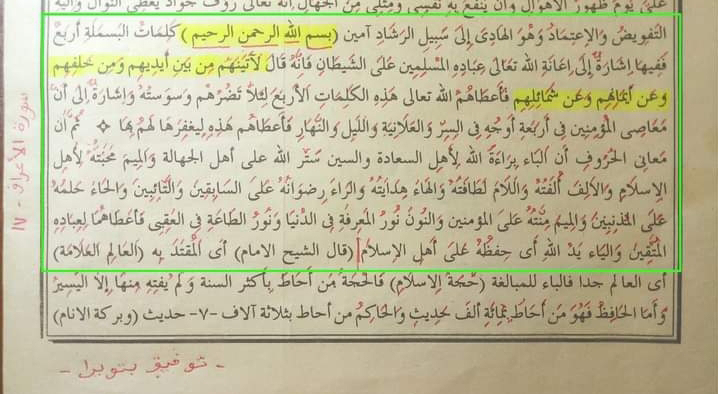 على يوم ظهور الاهوال وان ينفع به نفسي ومثلي من الجهال انه تعالى رؤف جواد يعطي النوال واليه
التَفويضُ وَالإِعتِمادُ وَهُوَ الهَادِى إِلَى سَبِيلِ الرَشَادِ آمين (بسم الله الرحمن الرحيم) كَلِمَاتُ البَسمَلَةِ أَربَعٌ
فَفِيهَا إِشَارَةٌ إِلَى إِعَانَةِ اللهِ تَعَالَى عِبَادِهِ المُسلِمِينَ عَلَى الشَيطَانِ فَإِنَّهُ قَالَ لَآتِيَنَّهُم مِن بَينِ أَيدِيهِم وَمِن خَلفِهِم
وَعَن أَيمَانِهِم وَعَن شَمَائِلِهِم فَأَعطَاهُمُ الله تعالى هَذِهِ الكَلِمَاتِ الأَربَعَ لِئَلَّا تَضُرَّهُم وَسوَسَتُهُ وَإِشَارَةٌ إِلَى أَنَّ
مَعَاصِى المُؤمِنِينَ فِى أَربَعَةِ أَوجُهٍ فِى السِرِّ وَالعَلَانِيَةِ وَاللَيلِ وَالنَّهَارِ فَأَعطَاهُم هَذِهِ لِيَغفِرَهَا لَهُم بِهَا ❖ ثُمَّ أَن
مَعَانِى الحُرُوفِ أَن البَاء بَرَاءَةُ اللهِ لِأَهلِ السعادة والسين سَتر الله على أهل الجهالة وَالمِيمَ مَحَبَّتُهُ لِأَهلِ
الإِسلَامِ وَالأَلِفَ أُلفَتُهُ وَاللَامَ لَطَافَتُهُ وَالهَاءَ هِدَايَتُهُ وَالرَاءَ رِضوَانُهُ عَلَى السَابِقِينَ وَالتَّائِبِينَ وَالحَاءَ حِلمُهُ
عَلَى المُذنِبِينَ وَالمِيمَ مِنَّتُهُ عَلَى المؤمنين وَالنُونَ نُورُ المَعرِفَةِ فِى الدُنيَا وَنُورُ الطَاعَةِ فِى العُقبَى فَأَعطَاهُمَا لِعِبَادِهِ
المُتَّقِينَ وَاليَاءَ يَدُ اللهِ أَى حِفظُهُ عَلَى أَهلِ الإِسلَامِ (قال الشيخ الامام) أَى المُقتَدَى بِهِ (العَالِم العَلَّامَة)
أى العالم جدا فالتاء للمبالغة (حُجَّةُ الإِسلَامِ) فَالحُجَّةُ مَن أَحَاطَ بِأكثر السنة وَلَم يَفُتهِ مِنهَا إِلَّا اليَسِيرُ
وَأَمَا الحَافِظُ فَهُوَ مَن أَحَاطَ بِمِائَةِ أَلفِ حَدِيثٍ وَالحَاكِمُ من أحاط بثلاثة آلاف -٧- حديث (وبركة الانام)
سورة الأعراف - ١٧
- توفيق بتوبرا -